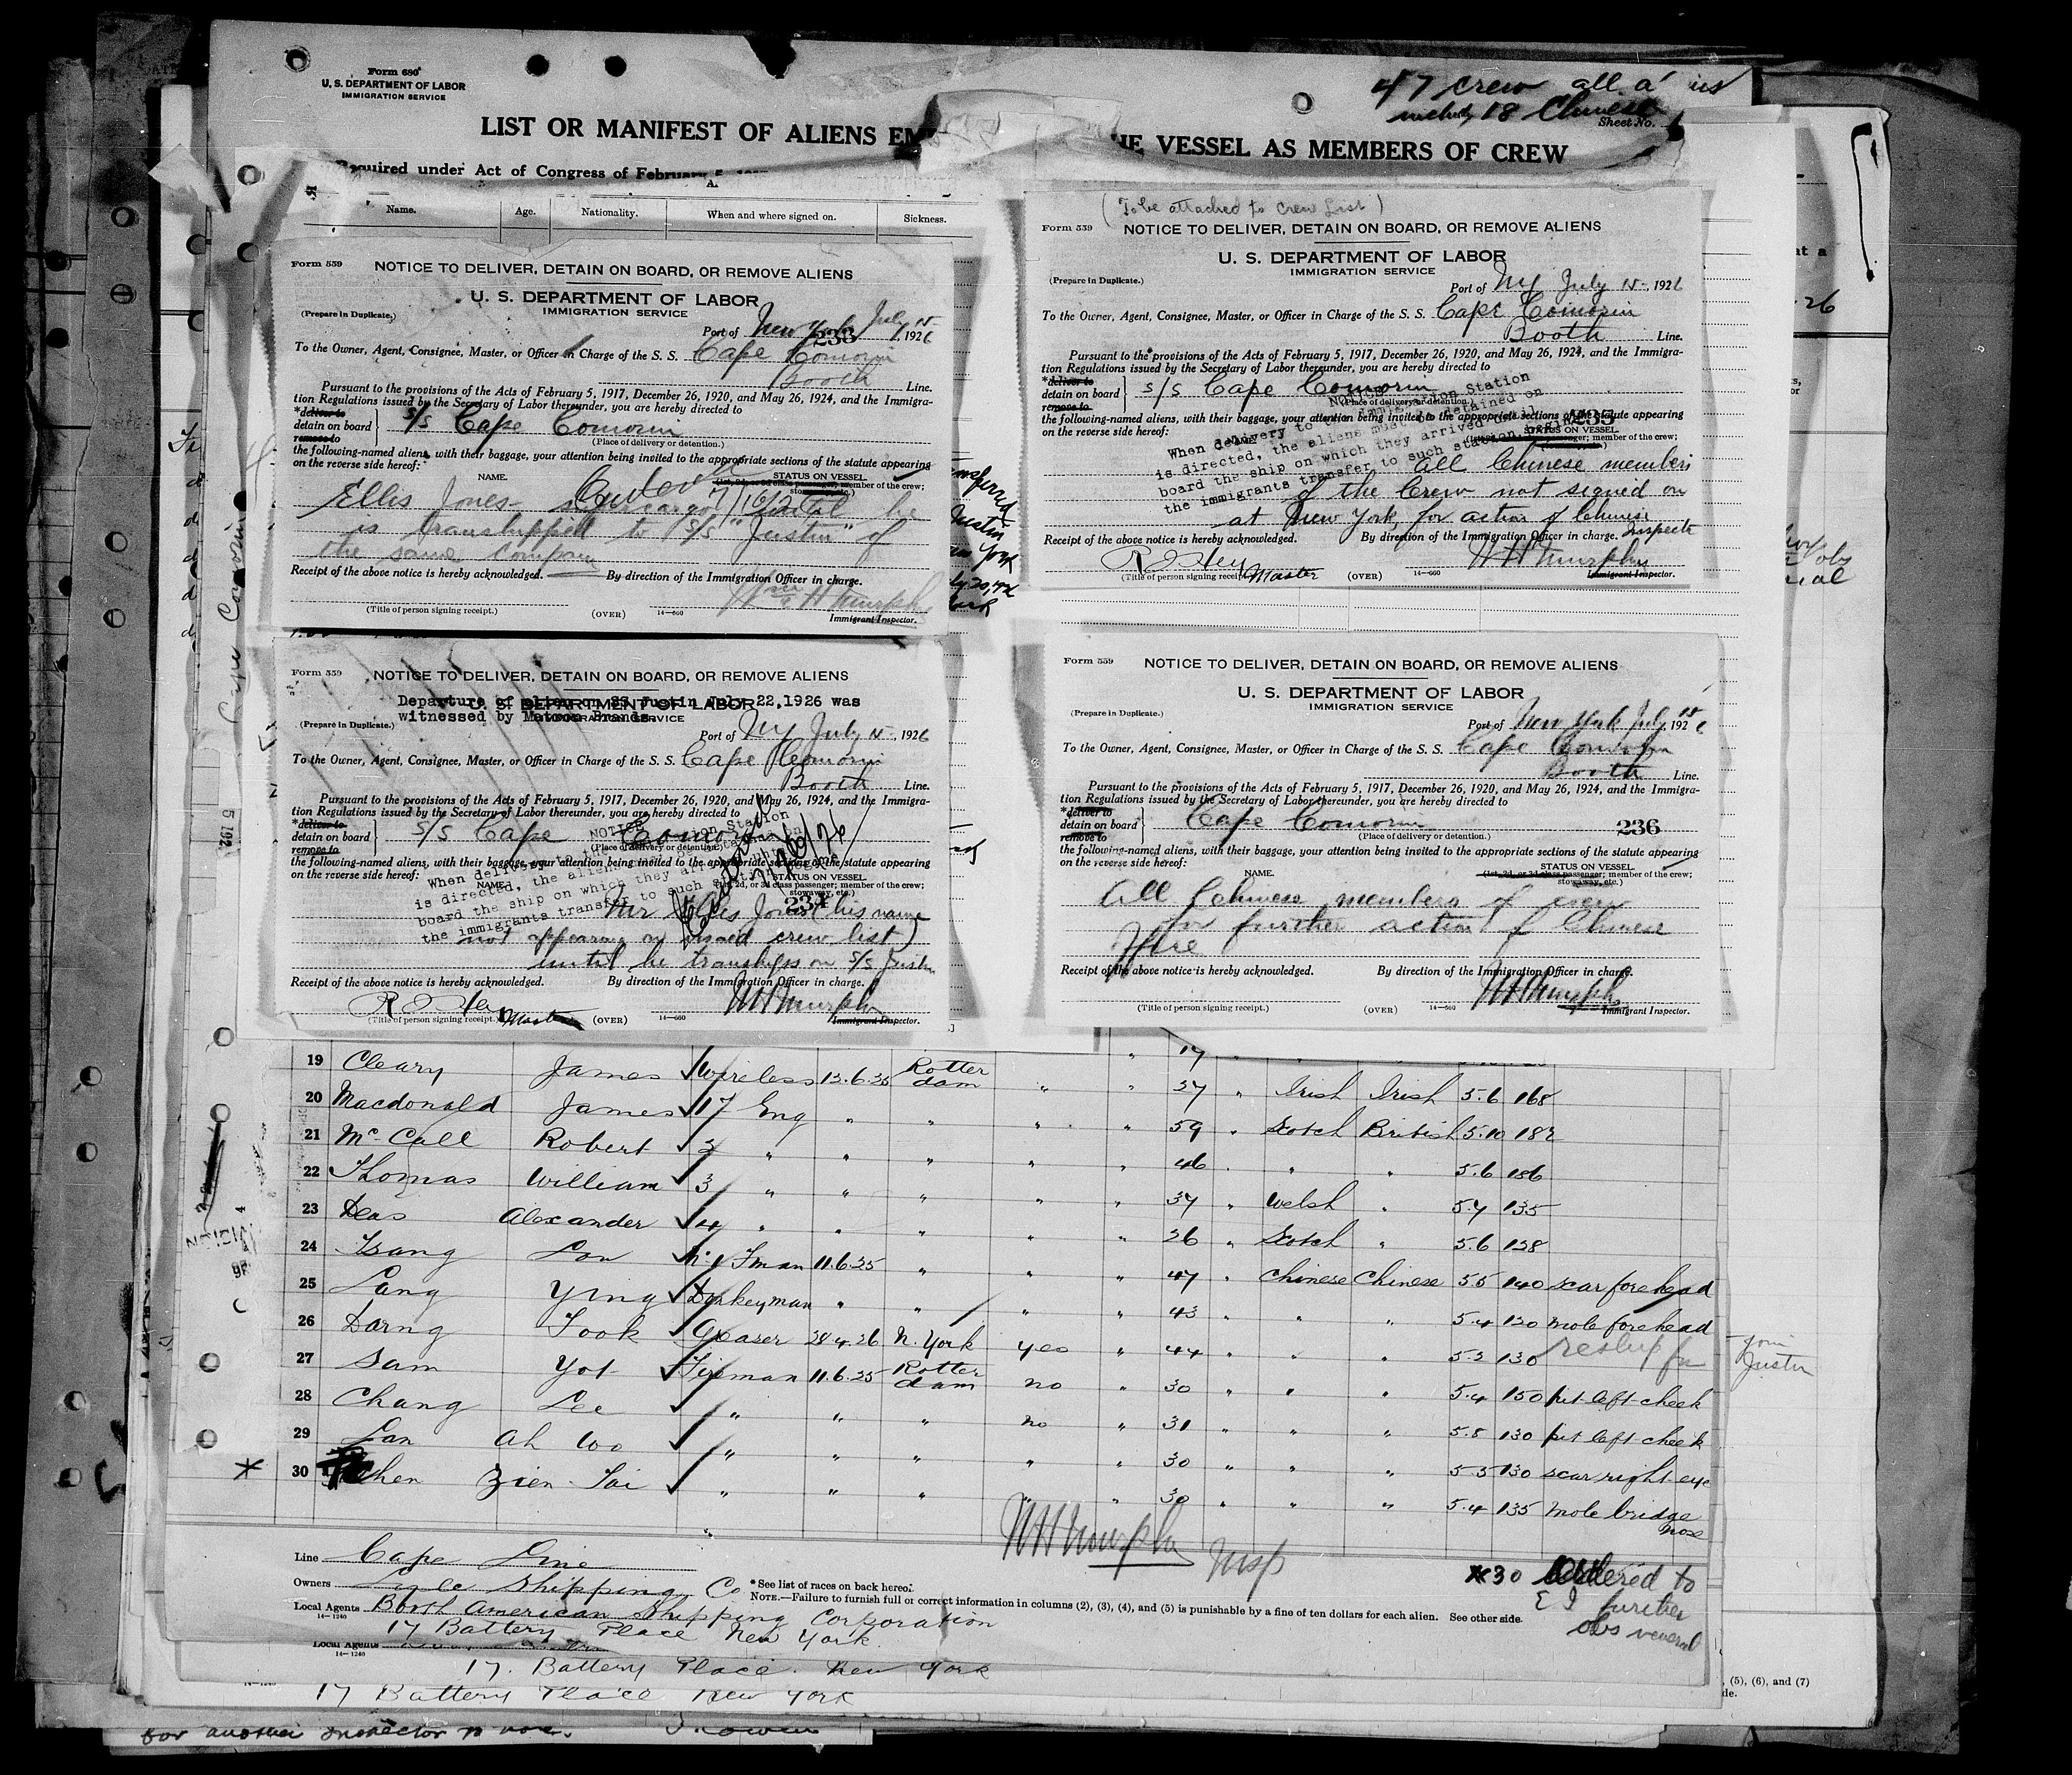 Form 680
U. S. DEPARTMENT OF LABOR
IMMIGRATION SERVICE
47 crew all
18 Chinese
Sheet No.
LIST OR MANIFEST OF ALIENS EM
HE VESSEL AS MEMBERS OF CREW
Required under Act of Congress of February 5,
Name. Age. Nationality. When and where signed on. Sickness.
Form 559
NOTICE TO DELIVER, DETAIN ON BOARD, OR REMOVE ALIENS
U. S. DEPARTMENT OF LABOR
IMMIGRATION SERVICE
(Prepare in Duplicate.)
Port of New York July 15 1926
233
To the Owner, Agent, Consignee, Master, or Officer in Charge of the S. S. Cape Comorin
Booth Line.
Pursuant to the provisions of the Acts of February 5, 1917, December 26, 1920, and May 26, 1924, and the Immigra-
tion Regulations issued by the Secretary of Labor thereunder, you are hereby directed to
*deliver to
detain on board
remove to
s/s Cape Comorin
(Place of delivery or detention.)
the following-named aliens, with their baggage, your attention being invited to the appropriate sections of the statute appearing
on the reverse side hereof:
NAME. STATUS ON VESSEL
(1st, 2d, or 3d class passenger; member of the crew;
stowaway, etc.)
Ellis Jones until he
is transhipped to S/S "Justin" of
the same company
Receipt of the above notice is hereby acknowledged. By direction of the Immigration Officer in charge.
Wm H Murphy
(Title of person signing receipt.) (OVER) 14—660 Immigrant Inspector.
(To be attached to Crew List)
Form 559
NOTICE TO DELIVER, DETAIN ON BOARD, OR REMOVE ALIENS
U. S. DEPARTMENT OF LABOR
IMMIGRATION SERVICE
(Prepare in Duplicate.)
Port of NY July 15, 1926
To the Owner, Agent, Consignee, Master, or Officer in Charge of the S. S. Cape Comorin
Booth Line.
Pursuant to the provisions of the Acts of February 5, 1917, December 26, 1920, and May 26, 1924, and the Immigra-
tion Regulations issued by the Secretary of Labor thereunder, you are hereby directed to
*deliver to
detain on board
remove to
s/s Cape Comorin
(Place of delivery or detention.)
the following-named aliens, with their baggage, your attention being invited to the appropriate sections of the statute appearing
on the reverse side hereof:
235
STATUS ON VESSEL
NOTICE
When delivery to the Immigration Station
is directed, the aliens must be detained on
board the ship on which they arrived until
the immigrants transfer to such station begins
All Chinese members
of the Crew not signed on
at New York, for action of Chinese
Inspector
Receipt of the above notice is hereby acknowledged. By direction of the Immigration Officer in charge.
W H Murphy
(Title of person signing receipt.) Master (OVER) 14—660 Immigrant Inspector.
Form 559
NOTICE TO DELIVER, DETAIN ON BOARD, OR REMOVE ALIENS
Departure of alien on SS Justin July 22,1926 was
witnessed by Matoon Brands.
U. S. DEPARTMENT OF LABOR
IMMIGRATION SERVICE
(Prepare in Duplicate.)
Port of NY July 15, 1926
To the Owner, Agent, Consignee, Master, or Officer in Charge of the S. S. Cape Comorin
Booth Line.
Pursuant to the provisions of the Acts of February 5, 1917, December 26, 1920, and May 26, 1924, and the Immigra-
tion Regulations issued by the Secretary of Labor thereunder, you are hereby directed to
*deliver to
detain on board
remove to
S/S Cape Comorin
(Place of delivery or detention.)
the following-named aliens, with their baggage, your attention being invited to the appropriate sections of the statute appearing
on the reverse side hereof:
NAME. STATUS ON VESSEL
(1st, 2d, or 3d class passenger; member of the crew;
stowaway, etc.)
234
Mr Ellis Jones (his name
not appearing on visaed crew list)
until he tranships on S/S Justin
Receipt of the above notice is hereby acknowledged. By direction of the Immigration Officer in charge.
W H Murphy
(Title of person signing receipt.) Master (OVER) 14—660 Immigrant Inspector.
Form 559
NOTICE TO DELIVER, DETAIN ON BOARD, OR REMOVE ALIENS
U. S. DEPARTMENT OF LABOR
IMMIGRATION SERVICE
(Prepare in Duplicate.)
Port of New York July 15 1926
To the Owner, Agent, Consignee, Master, or Officer in Charge of the S. S. Cape Comorin
Booth Line.
Pursuant to the provisions of the Acts of February 5, 1917, December 26, 1920, and May 26, 1924, and the Immigra-
tion Regulations issued by the Secretary of Labor thereunder, you are hereby directed to
*deliver to
detain on board
remove to
Cape Comorin
236
(Place of delivery or detention.)
the following-named aliens, with their baggage, your attention being invited to the appropriate sections of the statute appearing
on the reverse side hereof:
NAME. STATUS ON VESSEL
(1st, 2d, or 3d class passenger; member of the crew;
stowaway, etc.)
All Chinese members of crew
for further action of Chinese
Receipt of the above notice is hereby acknowledged. By direction of the Immigration Officer in charge.
W H Murphy
(Title of person signing receipt.) (OVER) 14—660 Immigrant Inspector.
19 Cleary James Wireless 12.6.25 Rotterdam " " 27 " Irish Irish 5.6 168
20 Macdonald James 1st Eng " " " " 59 " Scotch British 5.10 182
21 McCall Robert 2 " " " " " 46 " " " 5.6 186
22 Thomas William 3 " " " " " 37 " Welsh " 5.7 135
23 Deas Alexander 4 " " " " " 26 " Scotch " 5.6 128
24 Tsang Lon No 1 F'man 11.6.25 " " " 47 " Chinese Chinese 5.5 140 scar forehead
25 Lang Ying Donkeyman " " " " 43 " " " 5.4 120 mole forehead
26 Darng Sook Greaser 28.4.26 N. York yes " 44 " " " 5.2 130
27 Sam Yot Fireman 11.6.25 Rotterdam no " 30 " " " 5.4 150 pit left cheek
28 Chang Lee " " " no " 31 " " " 5.8 130 pit left cheek
29 Lan Ah Wo " " " " " 30 " " " 5.3 130 scar right eye
* 30 Chen Zien Tai " " " " " 30 " " " 5.4 135 mole bridge nose
Justin
W H Murphy Insp
Line Cape Line
Owners Lyle Shipping Co
Local Agents Booth American Shipping Corporation
14—1240
17 Battery Place New York
* See list of races on back hereof.
NOTE.—Failure to furnish full or correct information in columns (2), (3), (4), and (5) is punishable by a fine of ten dollars for each alien. See other side.
*30 Ordered to
E I further
Local Agents
14—1240
17. Battery Place. New York
17 Battery Place New York
, (5), (6), and (7)
de.
for another Inspector
Cape Comorin